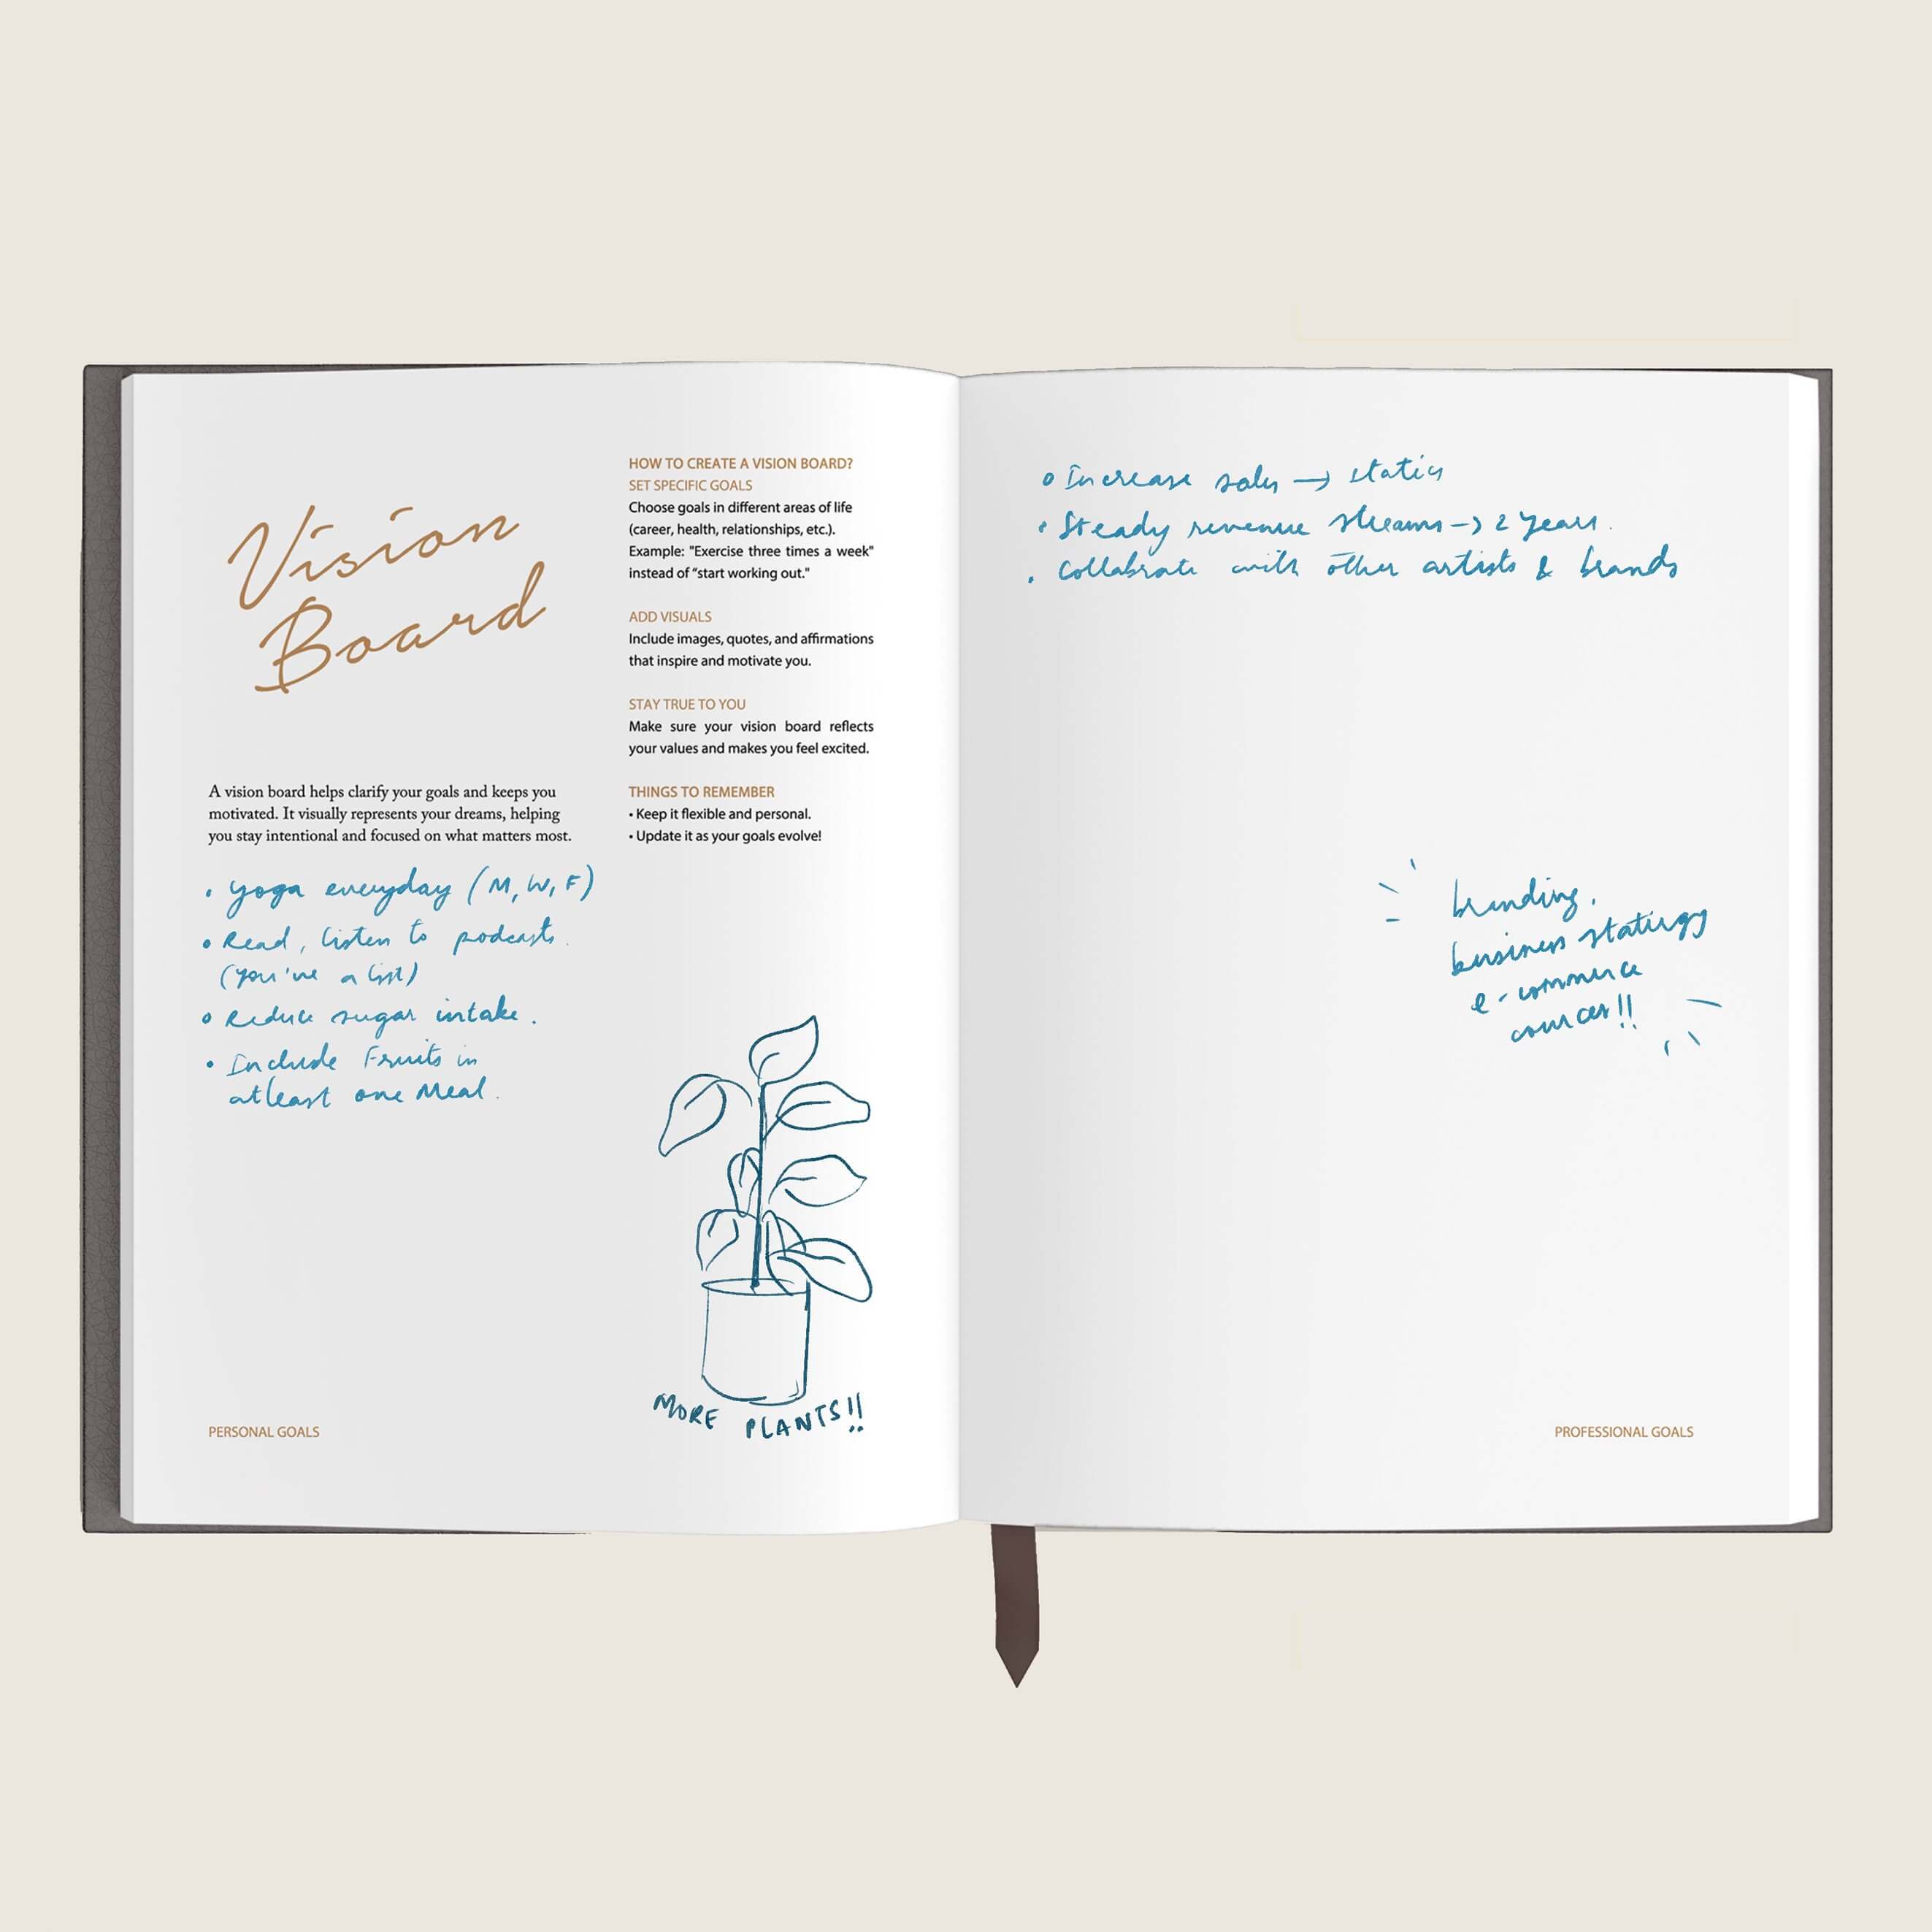 Vision
Board
A vision board helps clarify your goals and keeps you
motivated. It visually represents your dreams, helping
you stay intentional and focused on what matters most.
• yoga everyday (M, W, F)
• Read, listen to podcasts.
(you've a list)
• Reduce sugar intake.
• Include Fruits in
atleast one Meal.
PERSONAL GOALS
HOW TO CREATE A VISION BOARD?
SET SPECIFIC GOALS
Choose goals in different areas of life
(career, health, relationships, etc.).
Example: "Exercise three times a week"
instead of “start working out."
ADD VISUALS
Include images, quotes, and affirmations
that inspire and motivate you.
STAY TRUE TO YOU
Make sure your vision board reflects
your values and makes you feel excited.
THINGS TO REMEMBER
• Keep it flexible and personal.
• Update it as your goals evolve!
MORE PLANTS!!
• Increase sales →
• Steady revenue streams → 2 years.
• Collabrate with other artists & brands
branding,
business
e-commerce
PROFESSIONAL GOALS